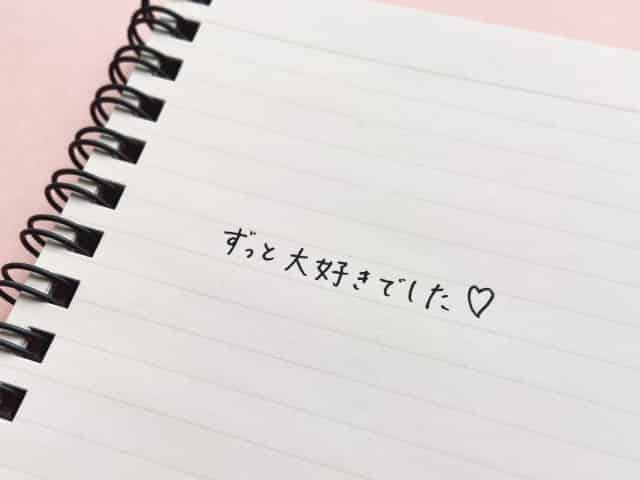 ずっと大好きでした♡